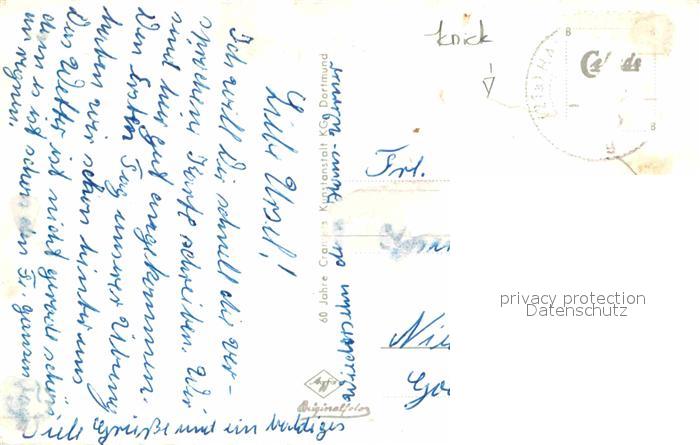 Liebe Ursel!
Ich will Dir schnell die ver-
sprochene Karte schreiben. Wir
sind hier gut angekommen.
Den ersten Tag unserer Übung
haben wir schon hinter uns
Das Wetter ist nicht gerade schön
denn es ist schon den Tag
am regnen.
Viele Grüße und ein baldiges
Wiedersehen
60 Jahre Cramers Kunstanstalt KG, Dortmund
Agfa
Originalfoto
knick
Frl.
Nie
privacy protection
Datenschutz